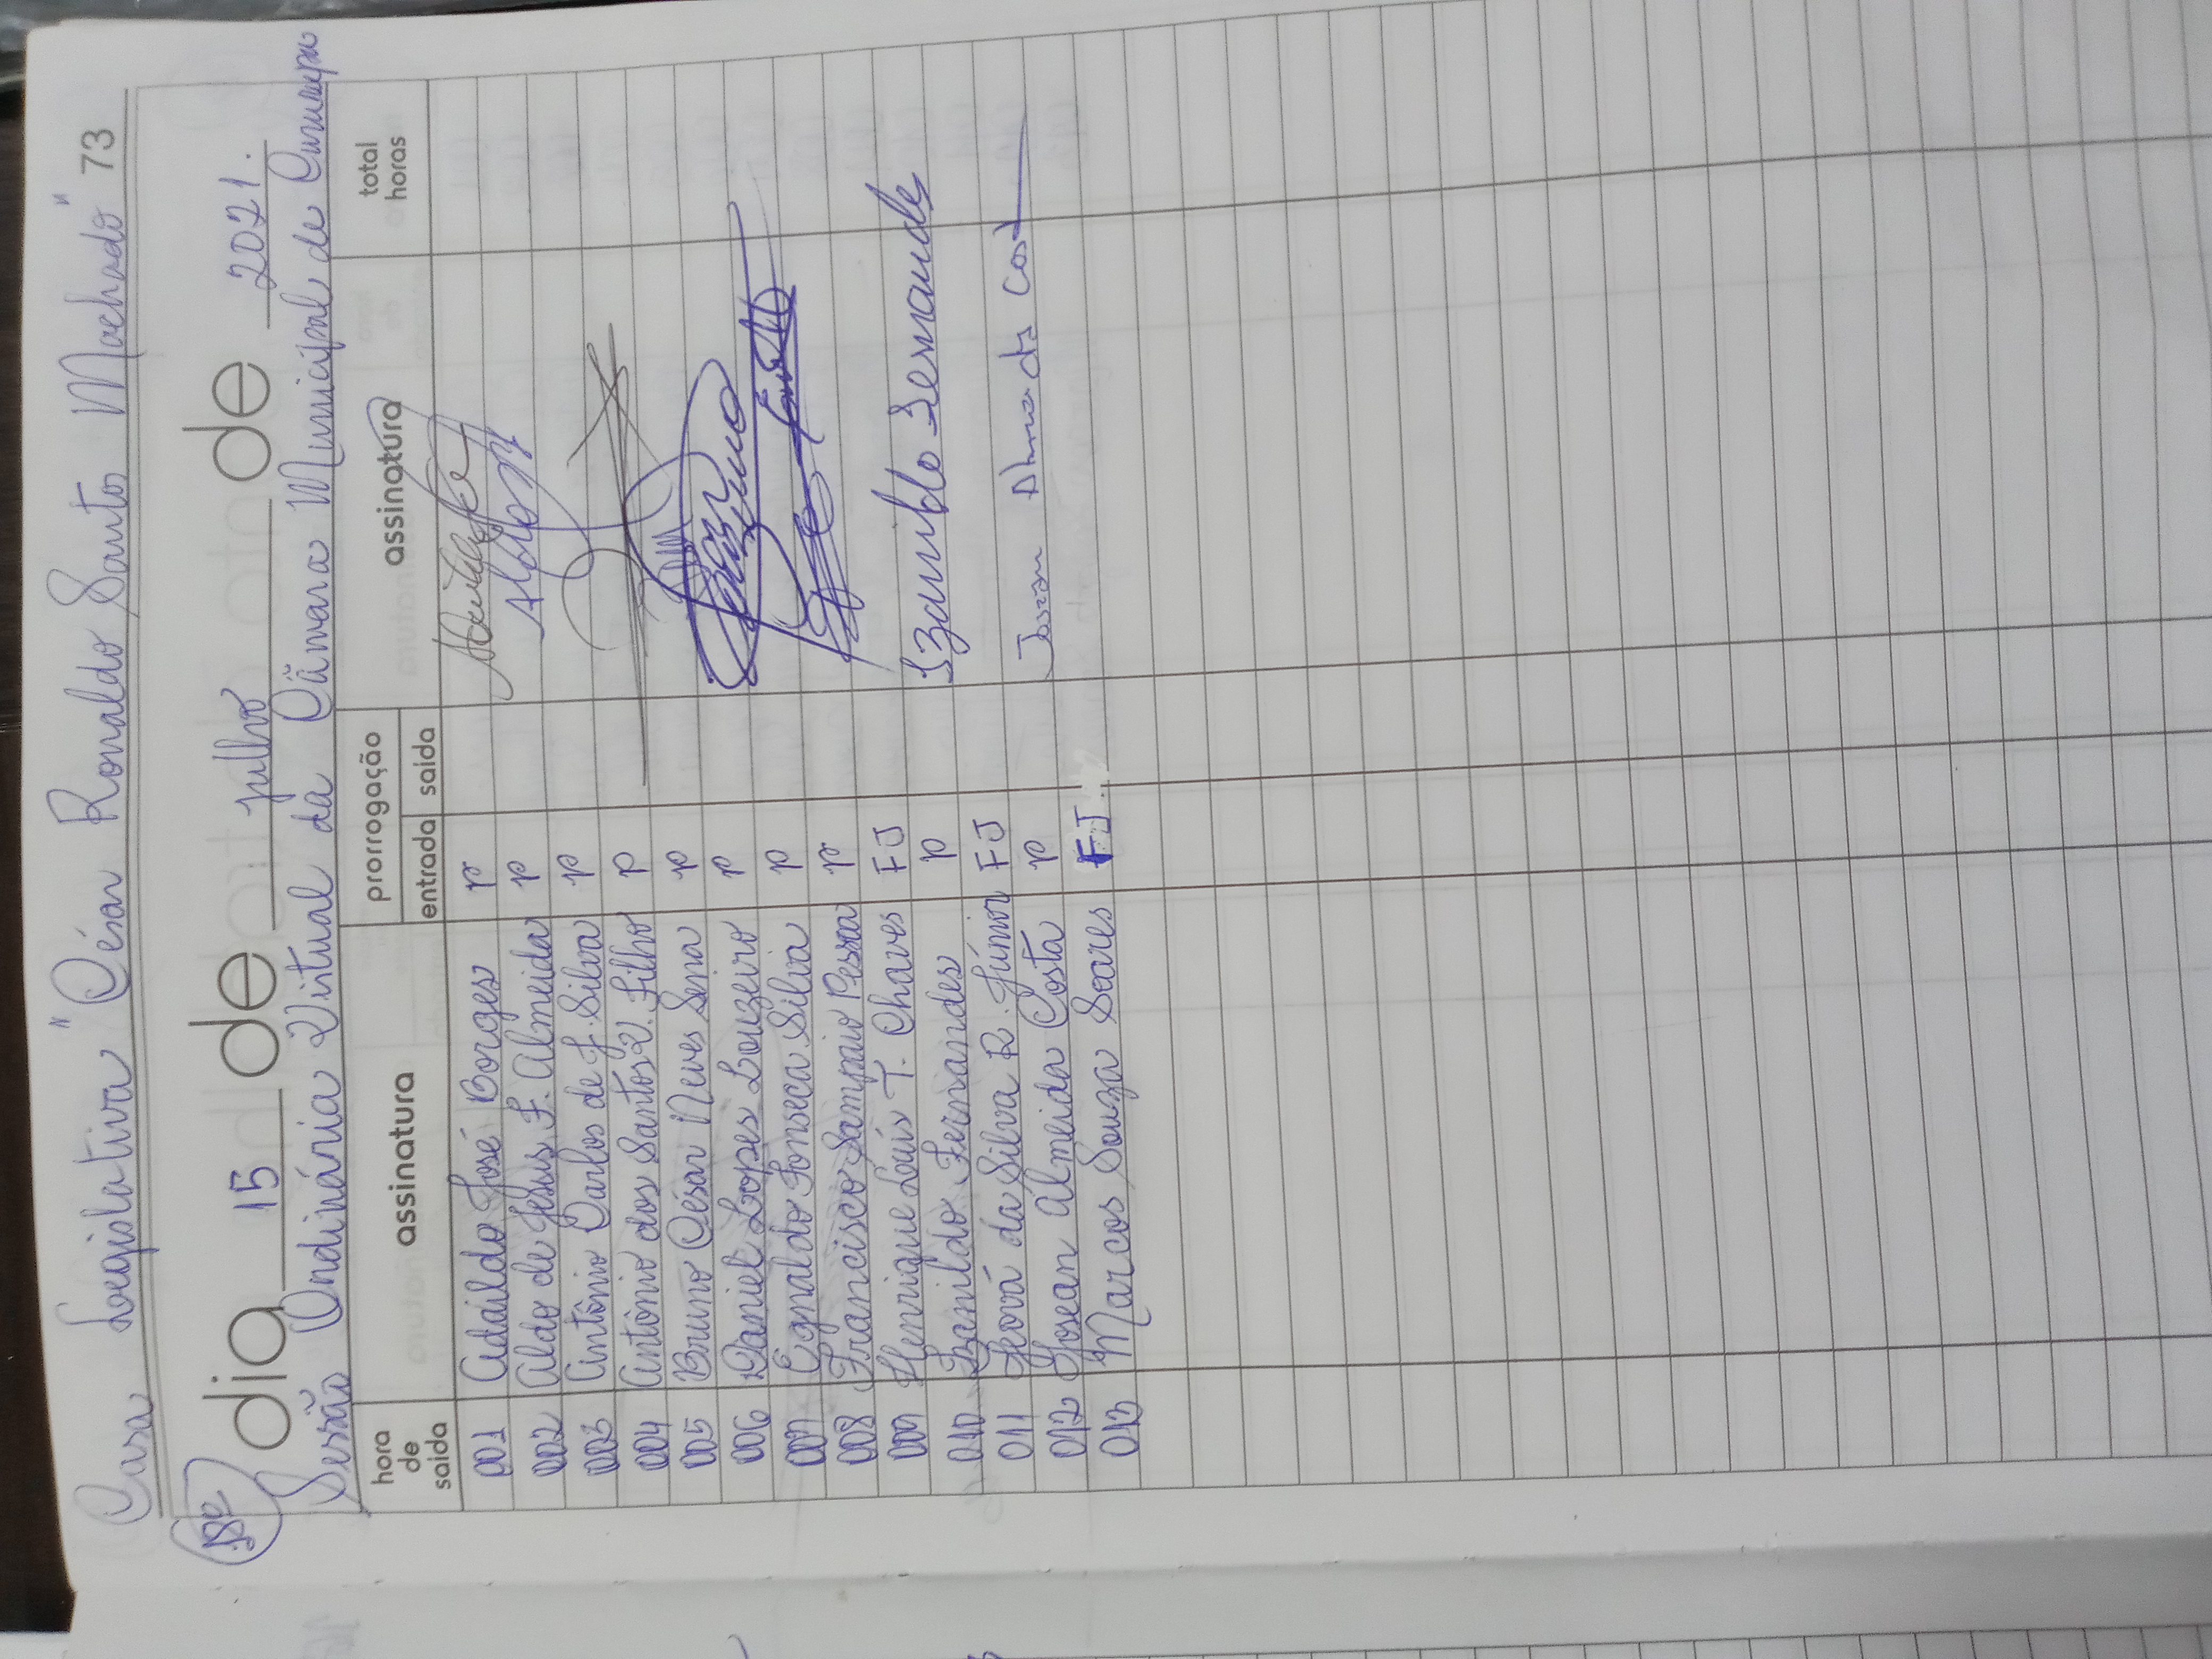 Casa Legislativa "César Ronaldo Santos Machado" 73
18ª dia 15 de julho de 2021.
Sessão Ordinária Virtual da Câmara Municipal de Cururupu
hora de saida assinatura prorrogação entrada saida assinatura total horas
001 Adaildo José Borges P
002 Aldo de Jesus F. Almeida P Aldo
003 Antônio Carlos de J. Silva P
004 Antônio dos Santos V. Filho P
005 Bruno César Neves Sena P
006 Daniel Lopes Louzeiro P
007 Egnaldo Fonseca Silva P
008 Francisco Sampaio Pessoa P
009 Henrique Luís T. Chaves FJ
010 Izanildo Fernandes P Izanildo Fernandes
011 Jeová da Silva R. Júnior FJ
012 Josean Almeida Costa P Josean Almeida Costa
013 Marcos Souza Soares FJ